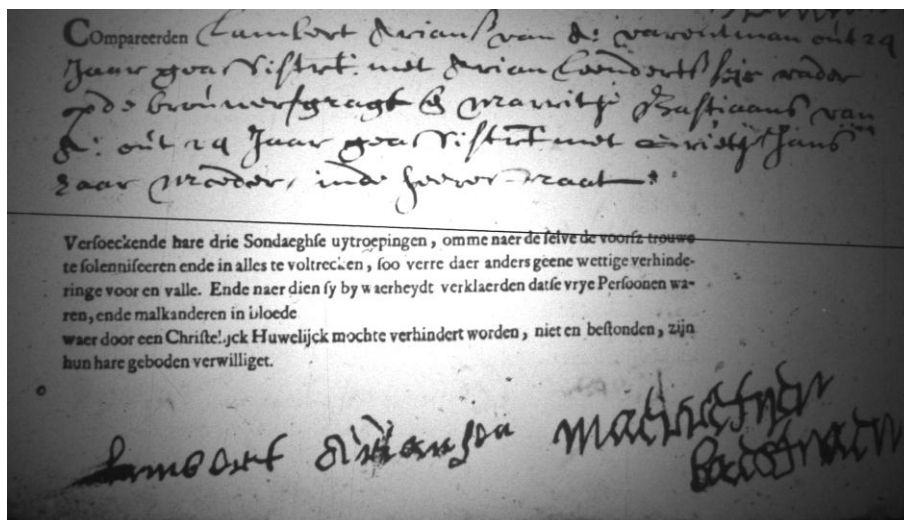 Compareerden Lambert Arians van A: varentman out 29
Jaar geassisteert met Arian Leenderts sijn vader
op de brouwersgragt & Marritje Bastiaans van
A: out 29 Jaar geassisteert met Grietje Jans
haar Moeder, inde heerestraat
Versoeckende hare drie Sondaeghse uytroepingen, omme naer de selve de voorsz trouwe
te solenniseeren ende in alles te voltrecken, soo verre daer anders geene wettige verhinde-
ringe voor en valle. Ende naer dien sy by waerheydt verklaerden datse vrye Persoonen wa-
ren, ende malkanderen in bloede
waer door een Christelijck Huwelijck mochte verhindert worden, niet en bestonden, zijn
hun hare geboden verwilliget.
Lambert Arianse Marritje
Bastiaan